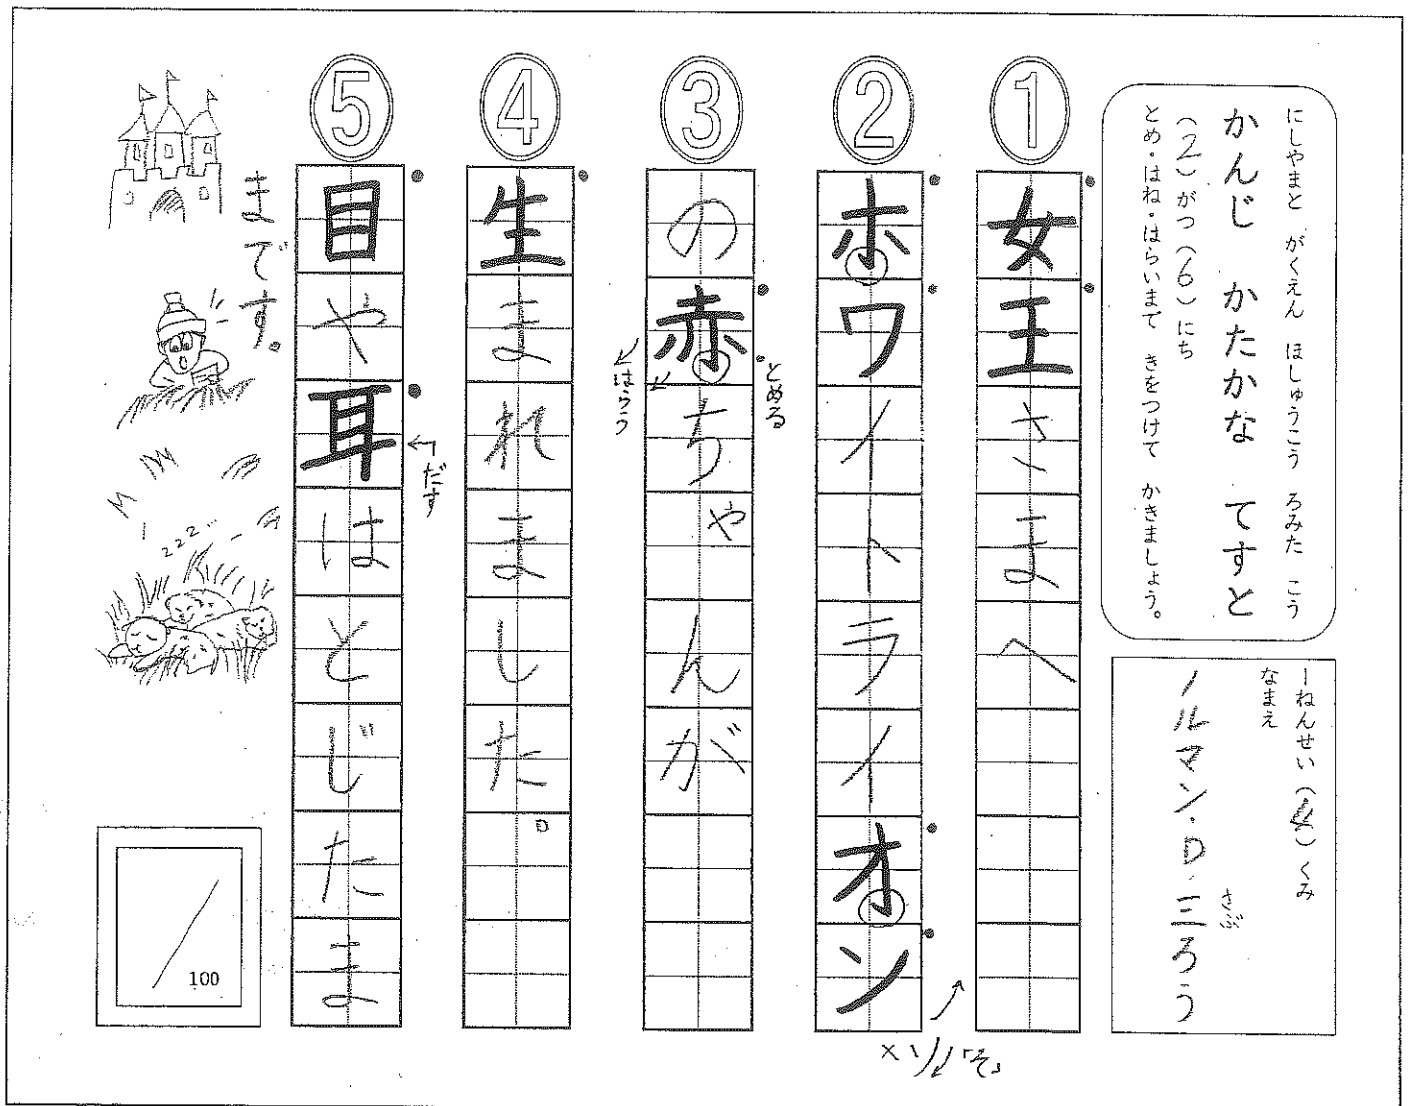 にしやまと がくえん ほしゅうこう ろみた こう
かんじ かたかな てすと
(2)がつ(6)にち
とめ・はね・はらいまで きをつけて かきましょう。
一ねんせい( )くみ
なまえ
ノルマン・D.三ろう
さぶ
①
女王さまへ
②
ホワイトライオン
×ソ「そ」
③
の赤ちゃんが
とめる
はらう
④
生まれました。
⑤
目や耳はとじたま
だす
まです。
zzz...
100